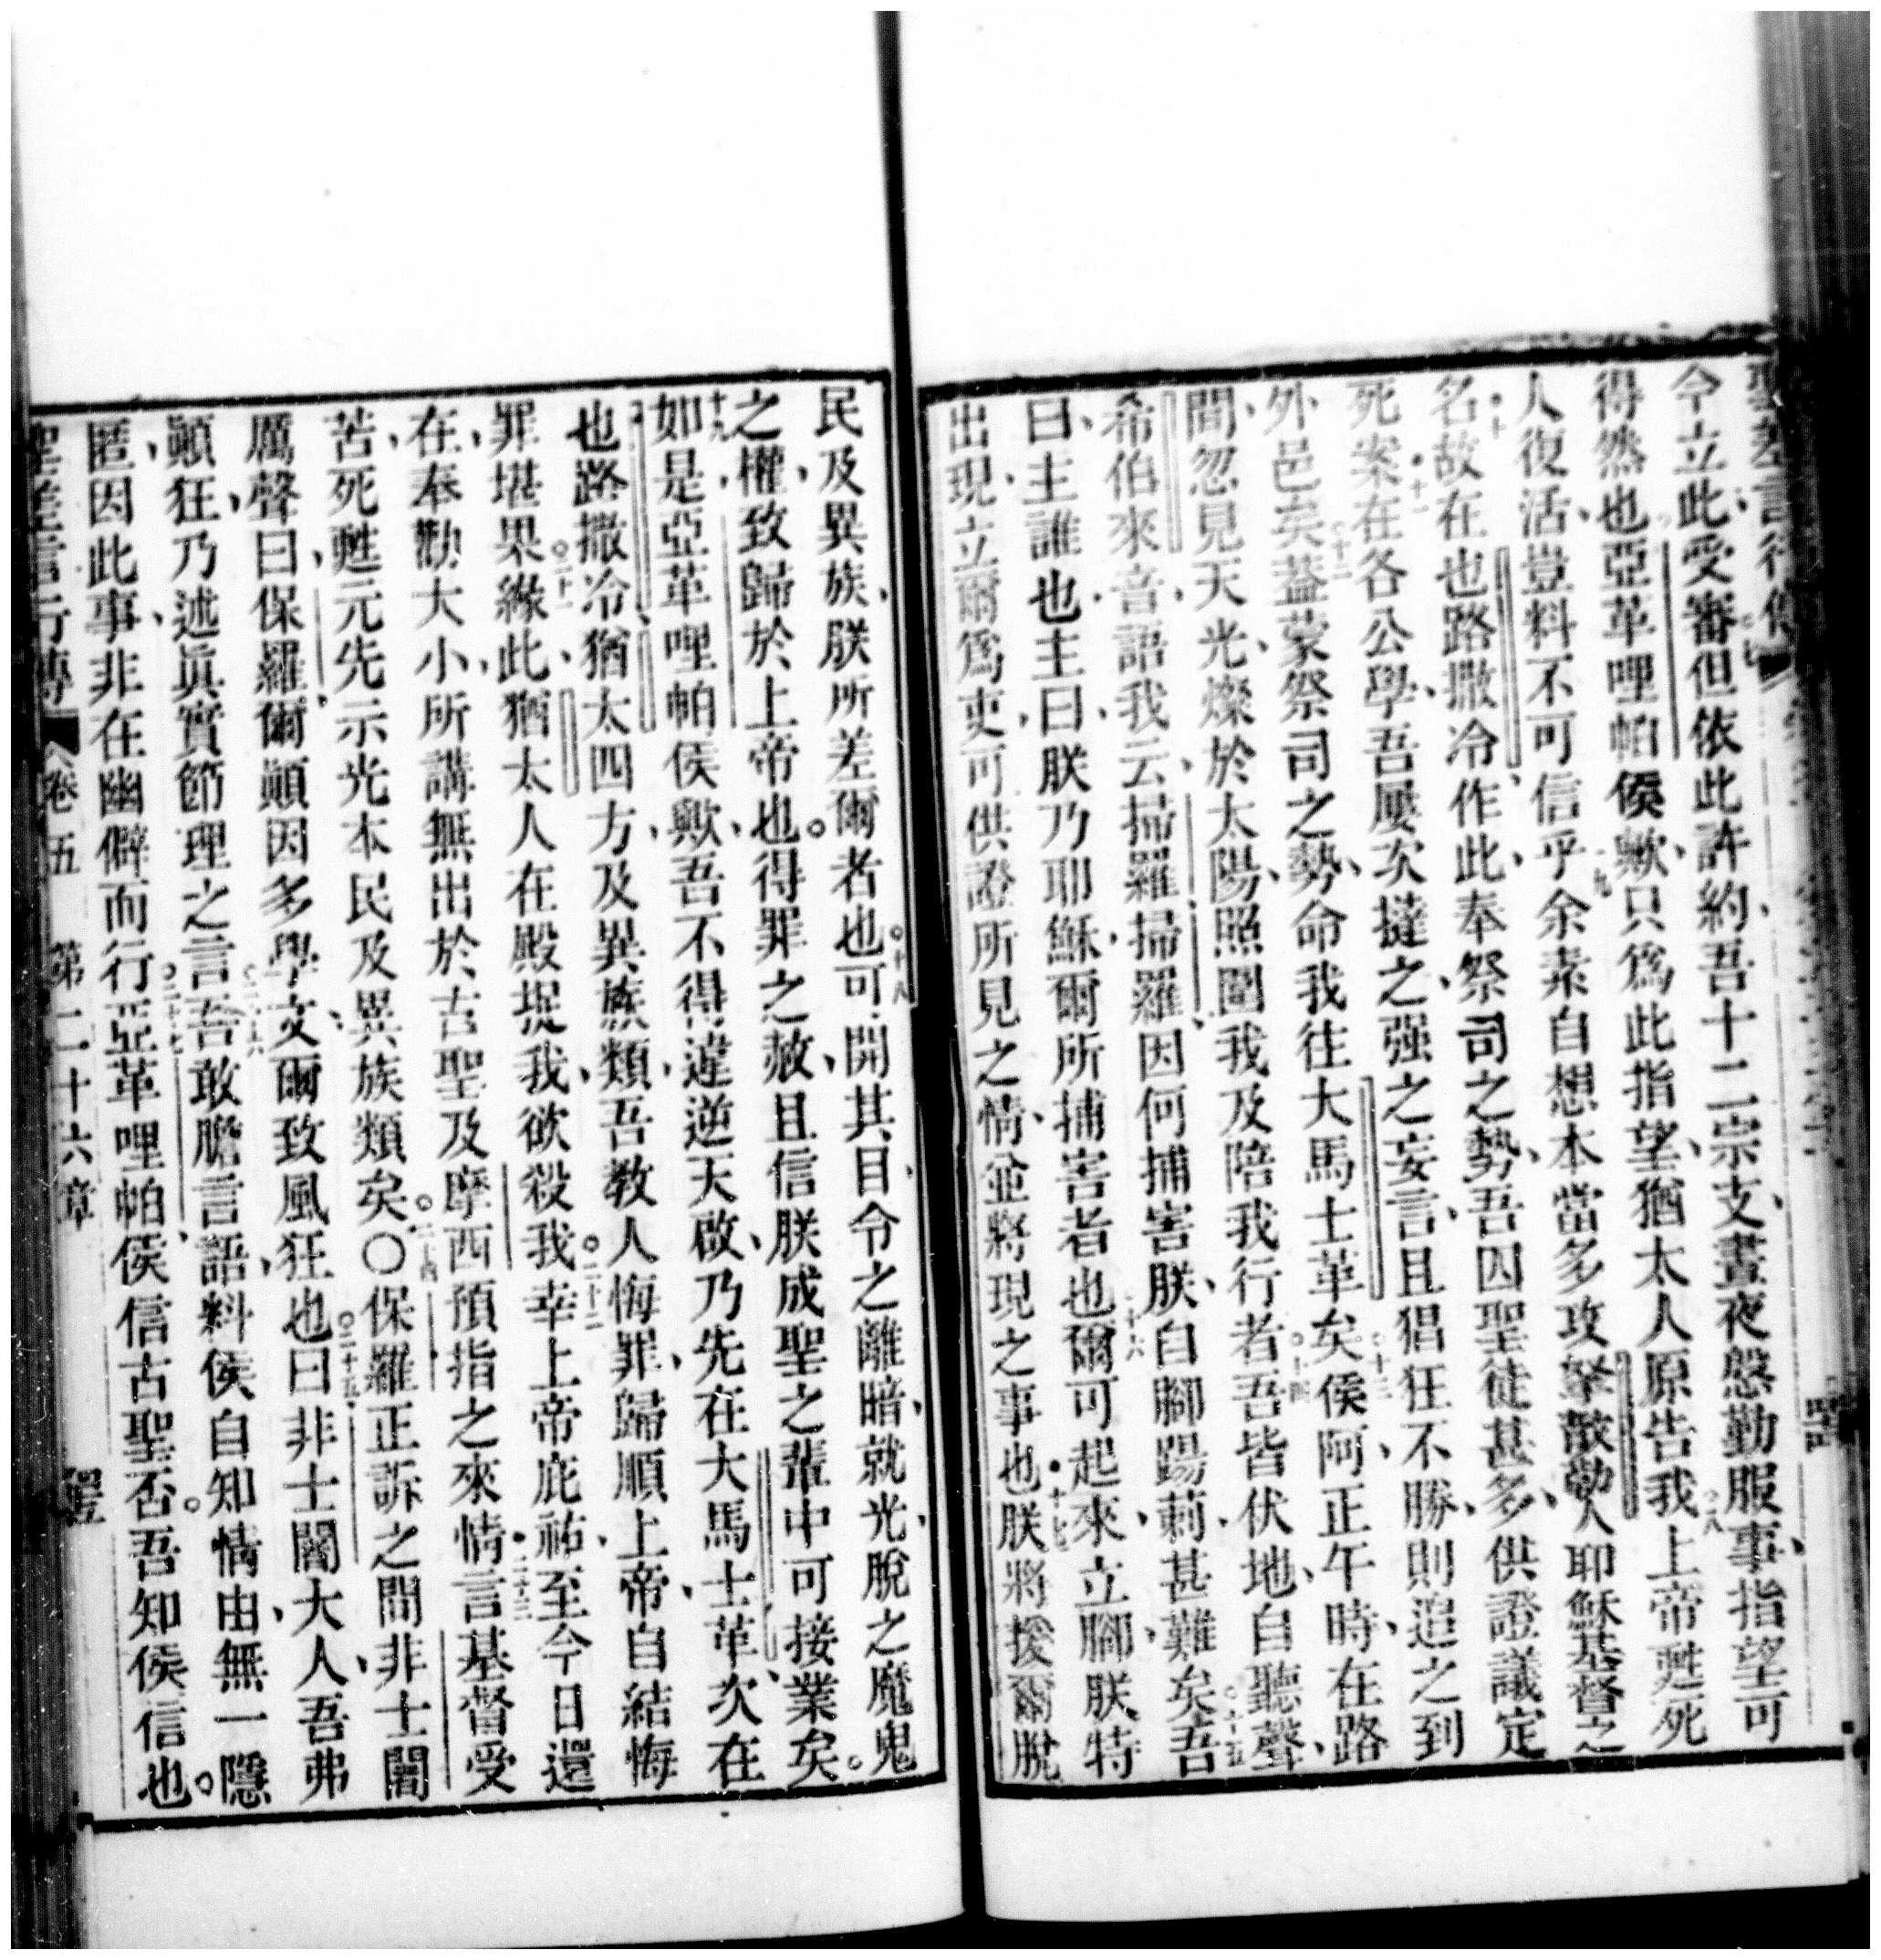 聖差言行傳
今立此受審但依此許約吾十二宗支晝夜慇勤服事指望可
得然也亞革哩帕侯歟只爲此指望猶太人原告我上帝甦死
人復活豈料不可信乎余素自想本當多攻拏散勒人耶穌基督之
名故在也路撒冷作此奉祭司之勢吾囚聖徒甚多供證議定
死案在各公學吾屢次撻之强之妄言且猖狂不勝則追之到
外邑矣蓋蒙祭司之勢命我往大馬士革矣侯阿正午時在路
間忽見天光燦於太陽照圍我及陪我行者吾皆伏地自聽聲
希伯來音語我云掃羅掃羅因何捕害朕自腳踢莿甚難矣吾
曰主誰也主曰朕乃耶穌爾所捕害者也爾可起來立腳朕特
出現立爾爲吏可供證所見之情並將現之事也朕將援爾脫
民及異族朕所差爾者也可開其目令之離暗就光脫之魔鬼
之權致歸於上帝也得罪之赦且信朕成聖之輩中可接業矣
如是亞革哩帕侯歟吾不得違逆天啟乃先在大馬士革次在
也路撒冷猶太四方及異族類吾教人悔罪歸順上帝自結悔
罪堪果緣此猶太人在殿捉我欲殺我幸上帝庇祐至今日還
在奉勸大小所講無出於古聖及摩西預指之來情言基督受
苦死甦元先示光本民及異族類矣〇保羅正訴之間非士闍
厲聲曰保羅爾顚因多學文爾致風狂也曰非士闍大人吾弗
顚狂乃述眞實節理之言吾敢膽言語料侯自知情由無一隱
匿因此事非在幽僻而行亞革哩帕侯信古聖否吾知侯信也
聖差言行傳 卷五 第二十六章